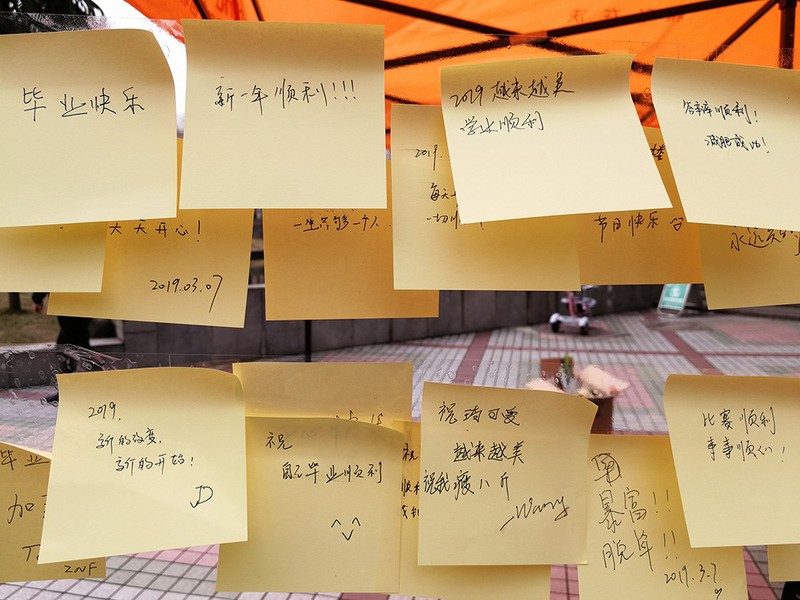 毕业快乐
新一年顺利!!!
2019 越来越美
学业顺利
答辩顺利!
减肥成功!
天天开心!
2019.03.07
一生只够爱一个人
2019.
每天
一切顺
节日快乐
永远
2019.
新的改变,
新的开始!
JD
祝
自己毕业顺利
祝琦可爱
越来越美
祝我瘦八斤
Wang
比赛顺利
事事顺心!
毕业
加
ZNF
祝
暴富!!
脱单!!
2019.3.7